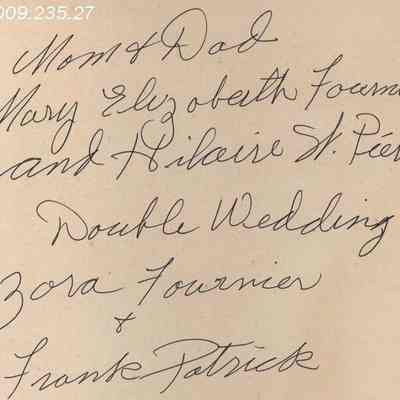 009.235.27
Mom & Dad
Mary Elizabeth Fourn
and Hilaire St. Pier
Double Wedding
Zora Fournier
&
Frank Patrick